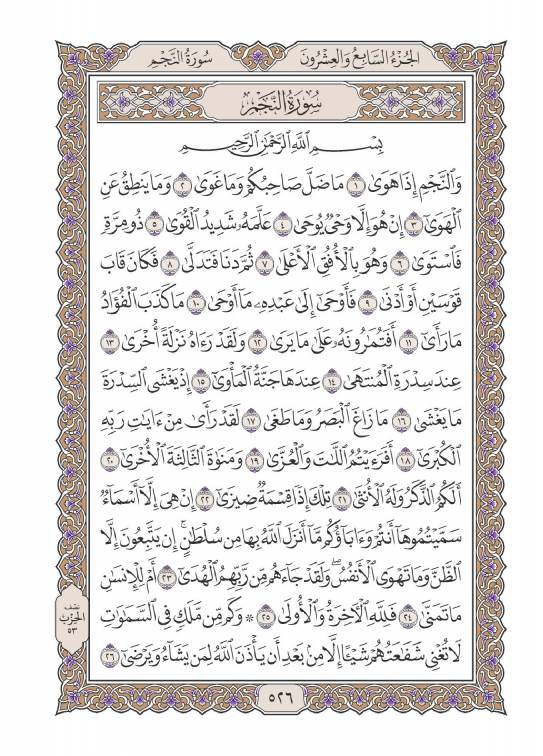 الجُزْءُ السَّابِعُ وَالعِشْرُونَ سُورَةُ النَّجْمِ
سُورَةُ النَّجْمِ
بِسْمِ ٱللَّهِ ٱلرَّحْمَٰنِ ٱلرَّحِيمِ
وَٱلنَّجْمِ إِذَا هَوَىٰ ١ مَا ضَلَّ صَاحِبُكُمْ وَمَا غَوَىٰ ٢ وَمَا يَنطِقُ عَنِ
ٱلْهَوَىٰٓ ٣ إِنْ هُوَ إِلَّا وَحْىٌ يُوحَىٰ ٤ عَلَّمَهُۥ شَدِيدُ ٱلْقُوَىٰ ٥ ذُو مِرَّةٍ
فَٱسْتَوَىٰ ٦ وَهُوَ بِٱلْأُفُقِ ٱلْأَعْلَىٰ ٧ ثُمَّ دَنَا فَتَدَلَّىٰ ٨ فَكَانَ قَابَ
قَوْسَيْنِ أَوْ أَدْنَىٰ ٩ فَأَوْحَىٰٓ إِلَىٰ عَبْدِهِۦ مَآ أَوْحَىٰ ١٠ مَا كَذَبَ ٱلْفُؤَادُ
مَا رَأَىٰٓ ١١ أَفَتُمَٰرُونَهُۥ عَلَىٰ مَا يَرَىٰ ١٢ وَلَقَدْ رَءَاهُ نَزْلَةً أُخْرَىٰ ١٣
عِندَ سِدْرَةِ ٱلْمُنتَهَىٰ ١٤ عِندَهَا جَنَّةُ ٱلْمَأْوَىٰٓ ١٥ إِذْ يَغْشَى ٱلسِّدْرَةَ
مَا يَغْشَىٰ ١٦ مَا زَاغَ ٱلْبَصَرُ وَمَا طَغَىٰ ١٧ لَقَدْ رَأَىٰ مِنْ ءَايَٰتِ رَبِّهِ
ٱلْكُبْرَىٰٓ ١٨ أَفَرَءَيْتُمُ ٱللَّٰتَ وَٱلْعُزَّىٰ ١٩ وَمَنَوٰةَ ٱلثَّالِثَةَ ٱلْأُخْرَىٰٓ ٢٠
أَلَكُمُ ٱلذَّكَرُ وَلَهُ ٱلْأُنثَىٰ ٢١ تِلْكَ إِذًا قِسْمَةٌ ضِيزَىٰٓ ٢٢ إِنْ هِىَ إِلَّآ أَسْمَآءٌ
سَمَّيْتُمُوهَآ أَنتُمْ وَءَابَآؤُكُم مَّآ أَنزَلَ ٱللَّهُ بِهَا مِن سُلْطَٰنٍ ۚ إِن يَتَّبِعُونَ إِلَّا
ٱلظَّنَّ وَمَا تَهْوَى ٱلْأَنفُسُ ۖ وَلَقَدْ جَآءَهُم مِّن رَّبِّهِمُ ٱلْهُدَىٰٓ ٢٣ أَمْ لِلْإِنسَٰنِ
مَا تَمَنَّىٰ ٢٤ فَلِلَّهِ ٱلْءَاخِرَةُ وَٱلْأُولَىٰ ٢٥ ۞ وَكَم مِّن مَّلَكٍ فِى ٱلسَّمَٰوَٰتِ
لَا تُغْنِى شَفَٰعَتُهُمْ شَيْـًٔا إِلَّا مِنۢ بَعْدِ أَن يَأْذَنَ ٱللَّهُ لِمَن يَشَآءُ وَيَرْضَىٰٓ ٢٦
نصف
الحزب
٥٣
٥٢٦